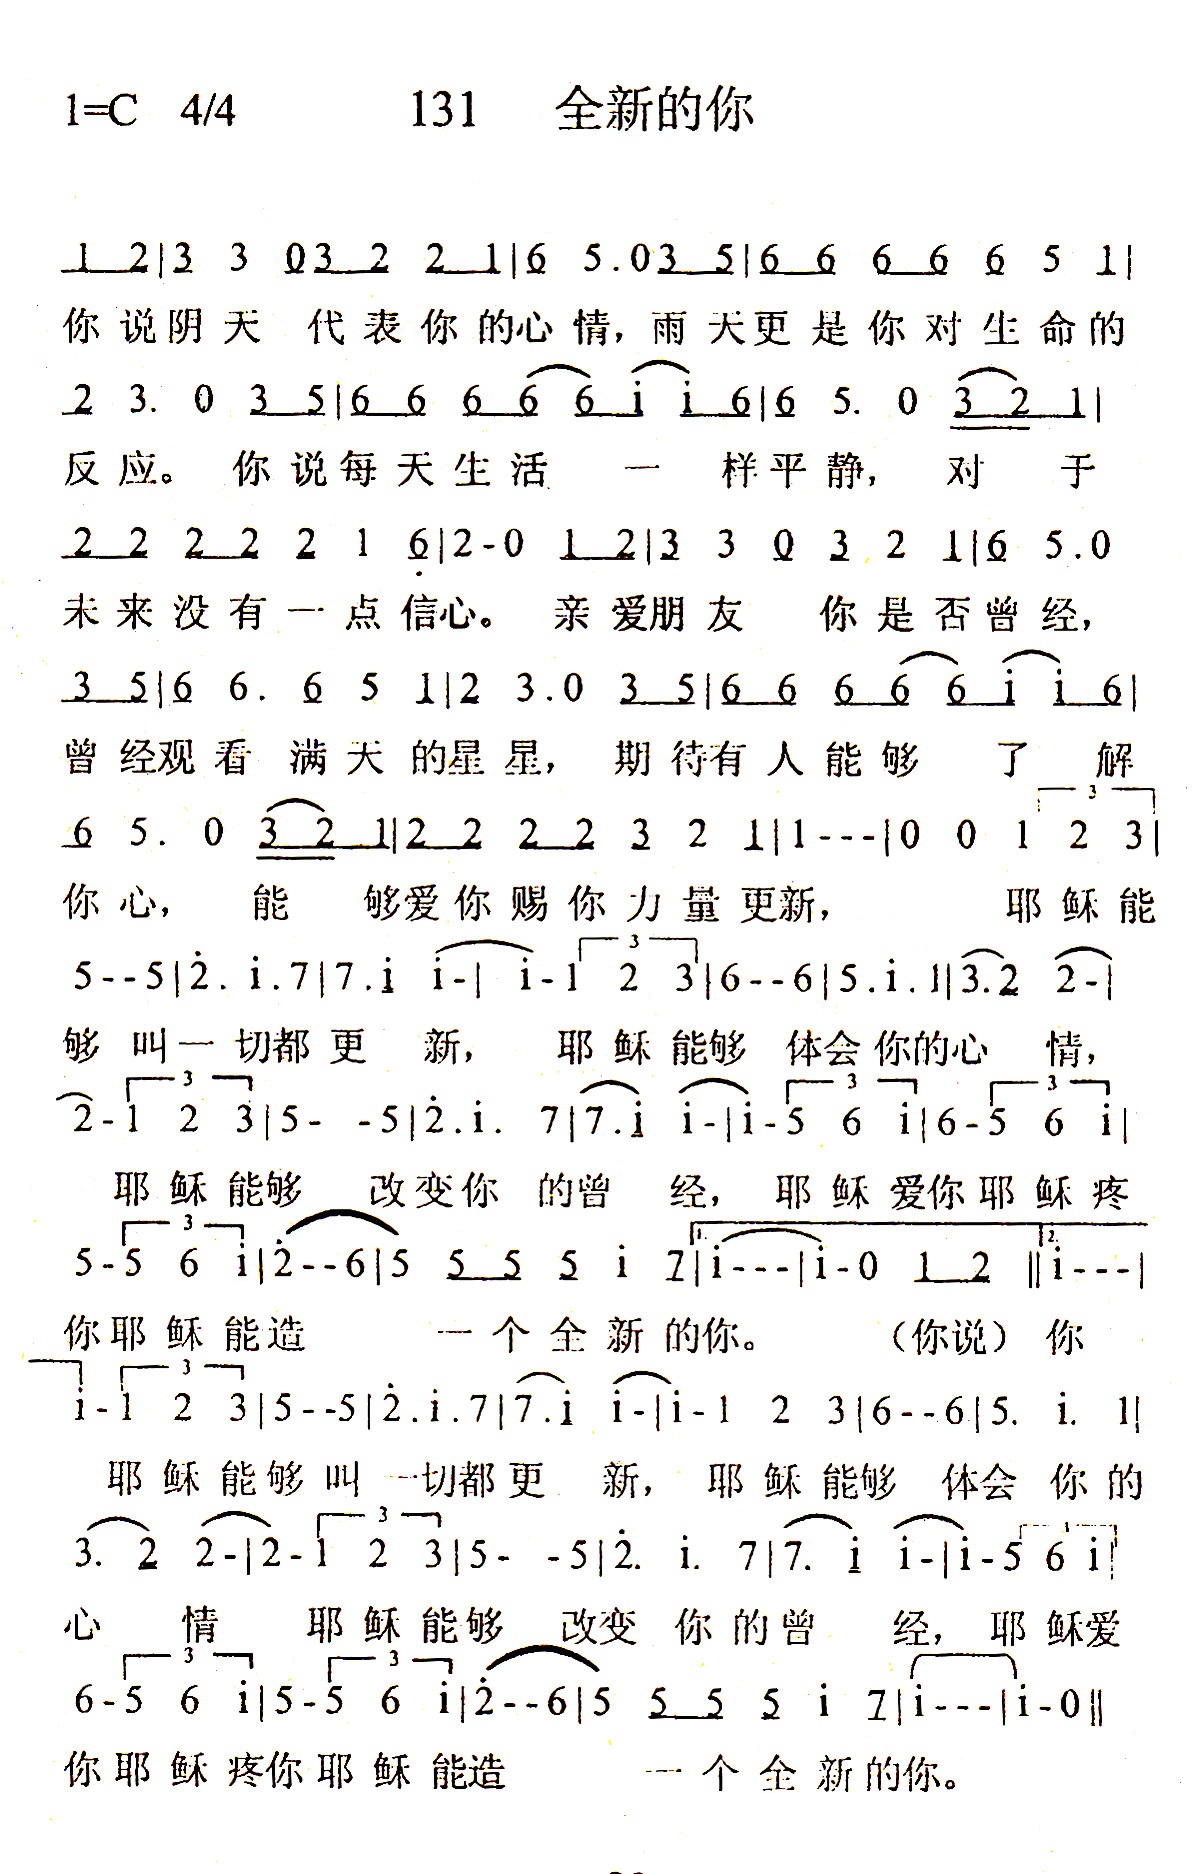 1=C 4/4 131 全新的你
1 2|3 3 03 2 2 1|6 5.03 5|6 6 6 6 6 5 1|
你说阴天 代表你的心情，雨天更是你对生命的
2 3. 0 3 5|6 6 6 6 6 i i 6|6 5. 0 3 2 1|
反应。 你说每天生活 一 样平静， 对 于
2 2 2 2 2 1 6̣|2-0 1 2|3 3 0 3 2 1|6 5.0
未来没有一点信心。 亲爱朋友 你是否曾经，
3 5|6 6. 6 5 1|2 3.0 3 5|6 6 6 6 6 i i 6|
曾经观看 满天的星星， 期待有人能够 了 解
3
6 5. 0 3 2 1|2 2 2 2 3 2 1|1---|0 0 1 2 3|
你心， 能 够爱你赐你力量更新， 耶稣能
3
5--5|2̇.i.7|7.i i-|i-1 2 3|6--6|5.i.1|3.2 2-|
够 叫一切都更 新， 耶稣能够 体会你的心 情，
3 3 3
2-1 2 3|5- -5|2̇.i. 7|7.i i-|i-5 6 i|6-5 6 i|
耶稣能够 改变你 的曾 经， 耶稣爱你耶稣疼
3 1. 2.
5-5 6 i|2̇--6|5 5 5 5 i 7|i---|i-0 1 2 ‖i---|
你耶稣能造 一个全新的你。 （你说）你
3
i-1 2 3|5--5|2̇.i.7|7.i i-|i-1 2 3|6--6|5. i. 1|
耶稣能够叫一切都更 新，耶稣能够 体会 你的
3
3. 2 2-|2-1 2 3|5- -5|2̇. i. 7|7. i i-|i-5 6 i|
心 情 耶稣能够 改变 你的曾 经， 耶稣爱
3 3
6-5 6 i|5-5 6 i|2̇--6|5 5 5 5 i 7|i---|i-0‖
你耶稣疼你耶稣能造 一个全新的你。